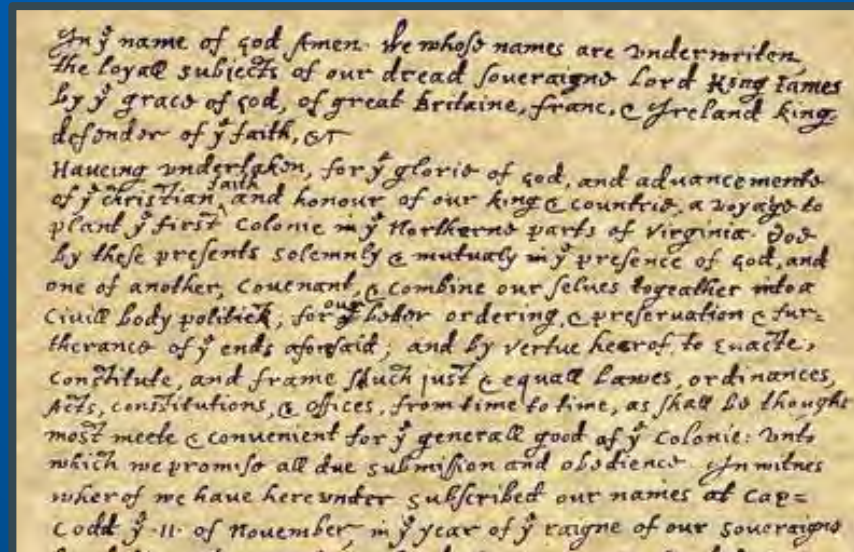 In yᵉ name of god Amen. We whose names are vnderwriten,
the loyall subjects of our dread soueraigne Lord King Iames
by yᵉ grace of god, of great Britaine, franc, & Ireland king,
defender of yᵉ faith, &c
Haueing vndertaken, for yᵉ glorie of god, and aduancemente
of yᵉ christian faith and honour of our king & countrie, a voyage to
plant yᵉ first Colonie in yᵉ Northerne parts of Virginia. Doe
by these presents solemnly & mutualy in yᵉ presence of god, and
one of another, Couenant, & Combine our selues togeather into a
Ciuill body politick; for our better ordering, & preseruation & fur=
therance of yᵉ ends aforesaid; and by vertue hearof to Enacte,
Constitute, and frame shuch just & equall Lawes, ordinances,
Acts, constitutions, & offices, from time to time, as shall be thought
most meete & conuenient for yᵉ generall good of yᵉ Colonie: vnto
which we promise all due submission and obedience. In witnes
wherof we haue herevnder subscribed our names at Cap=
Codd yᵉ ·11· of Nouember, in yᵉ year of yᵉ raigne of our soueraigne